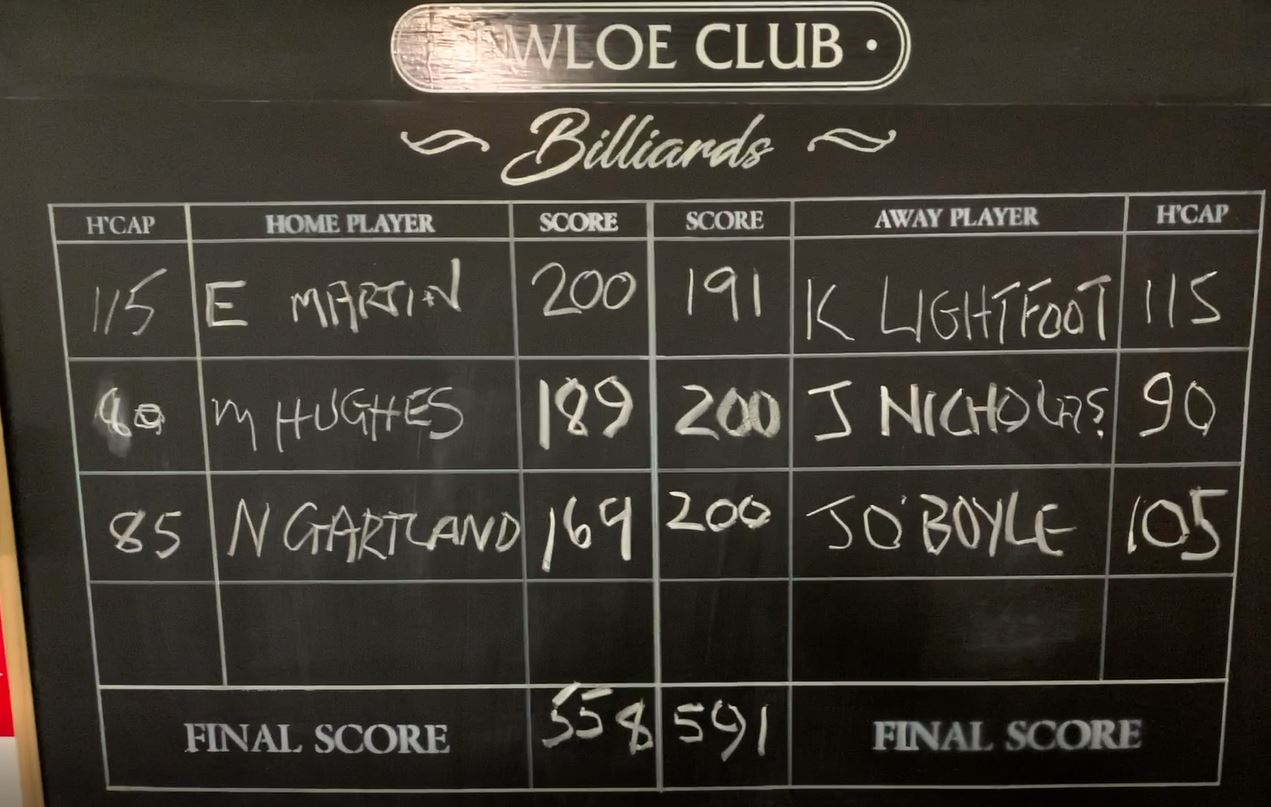 WLOE CLUB ·
Billiards
H'CAP HOME PLAYER SCORE SCORE AWAY PLAYER H'CAP
115 E MARTIN 200 191 K LIGHTFOOT 115
M HUGHES 189 200 J NICHOLAS 90
85 N GARTLAND 169 200 J O'BOYLE 105
FINAL SCORE 558 591 FINAL SCORE